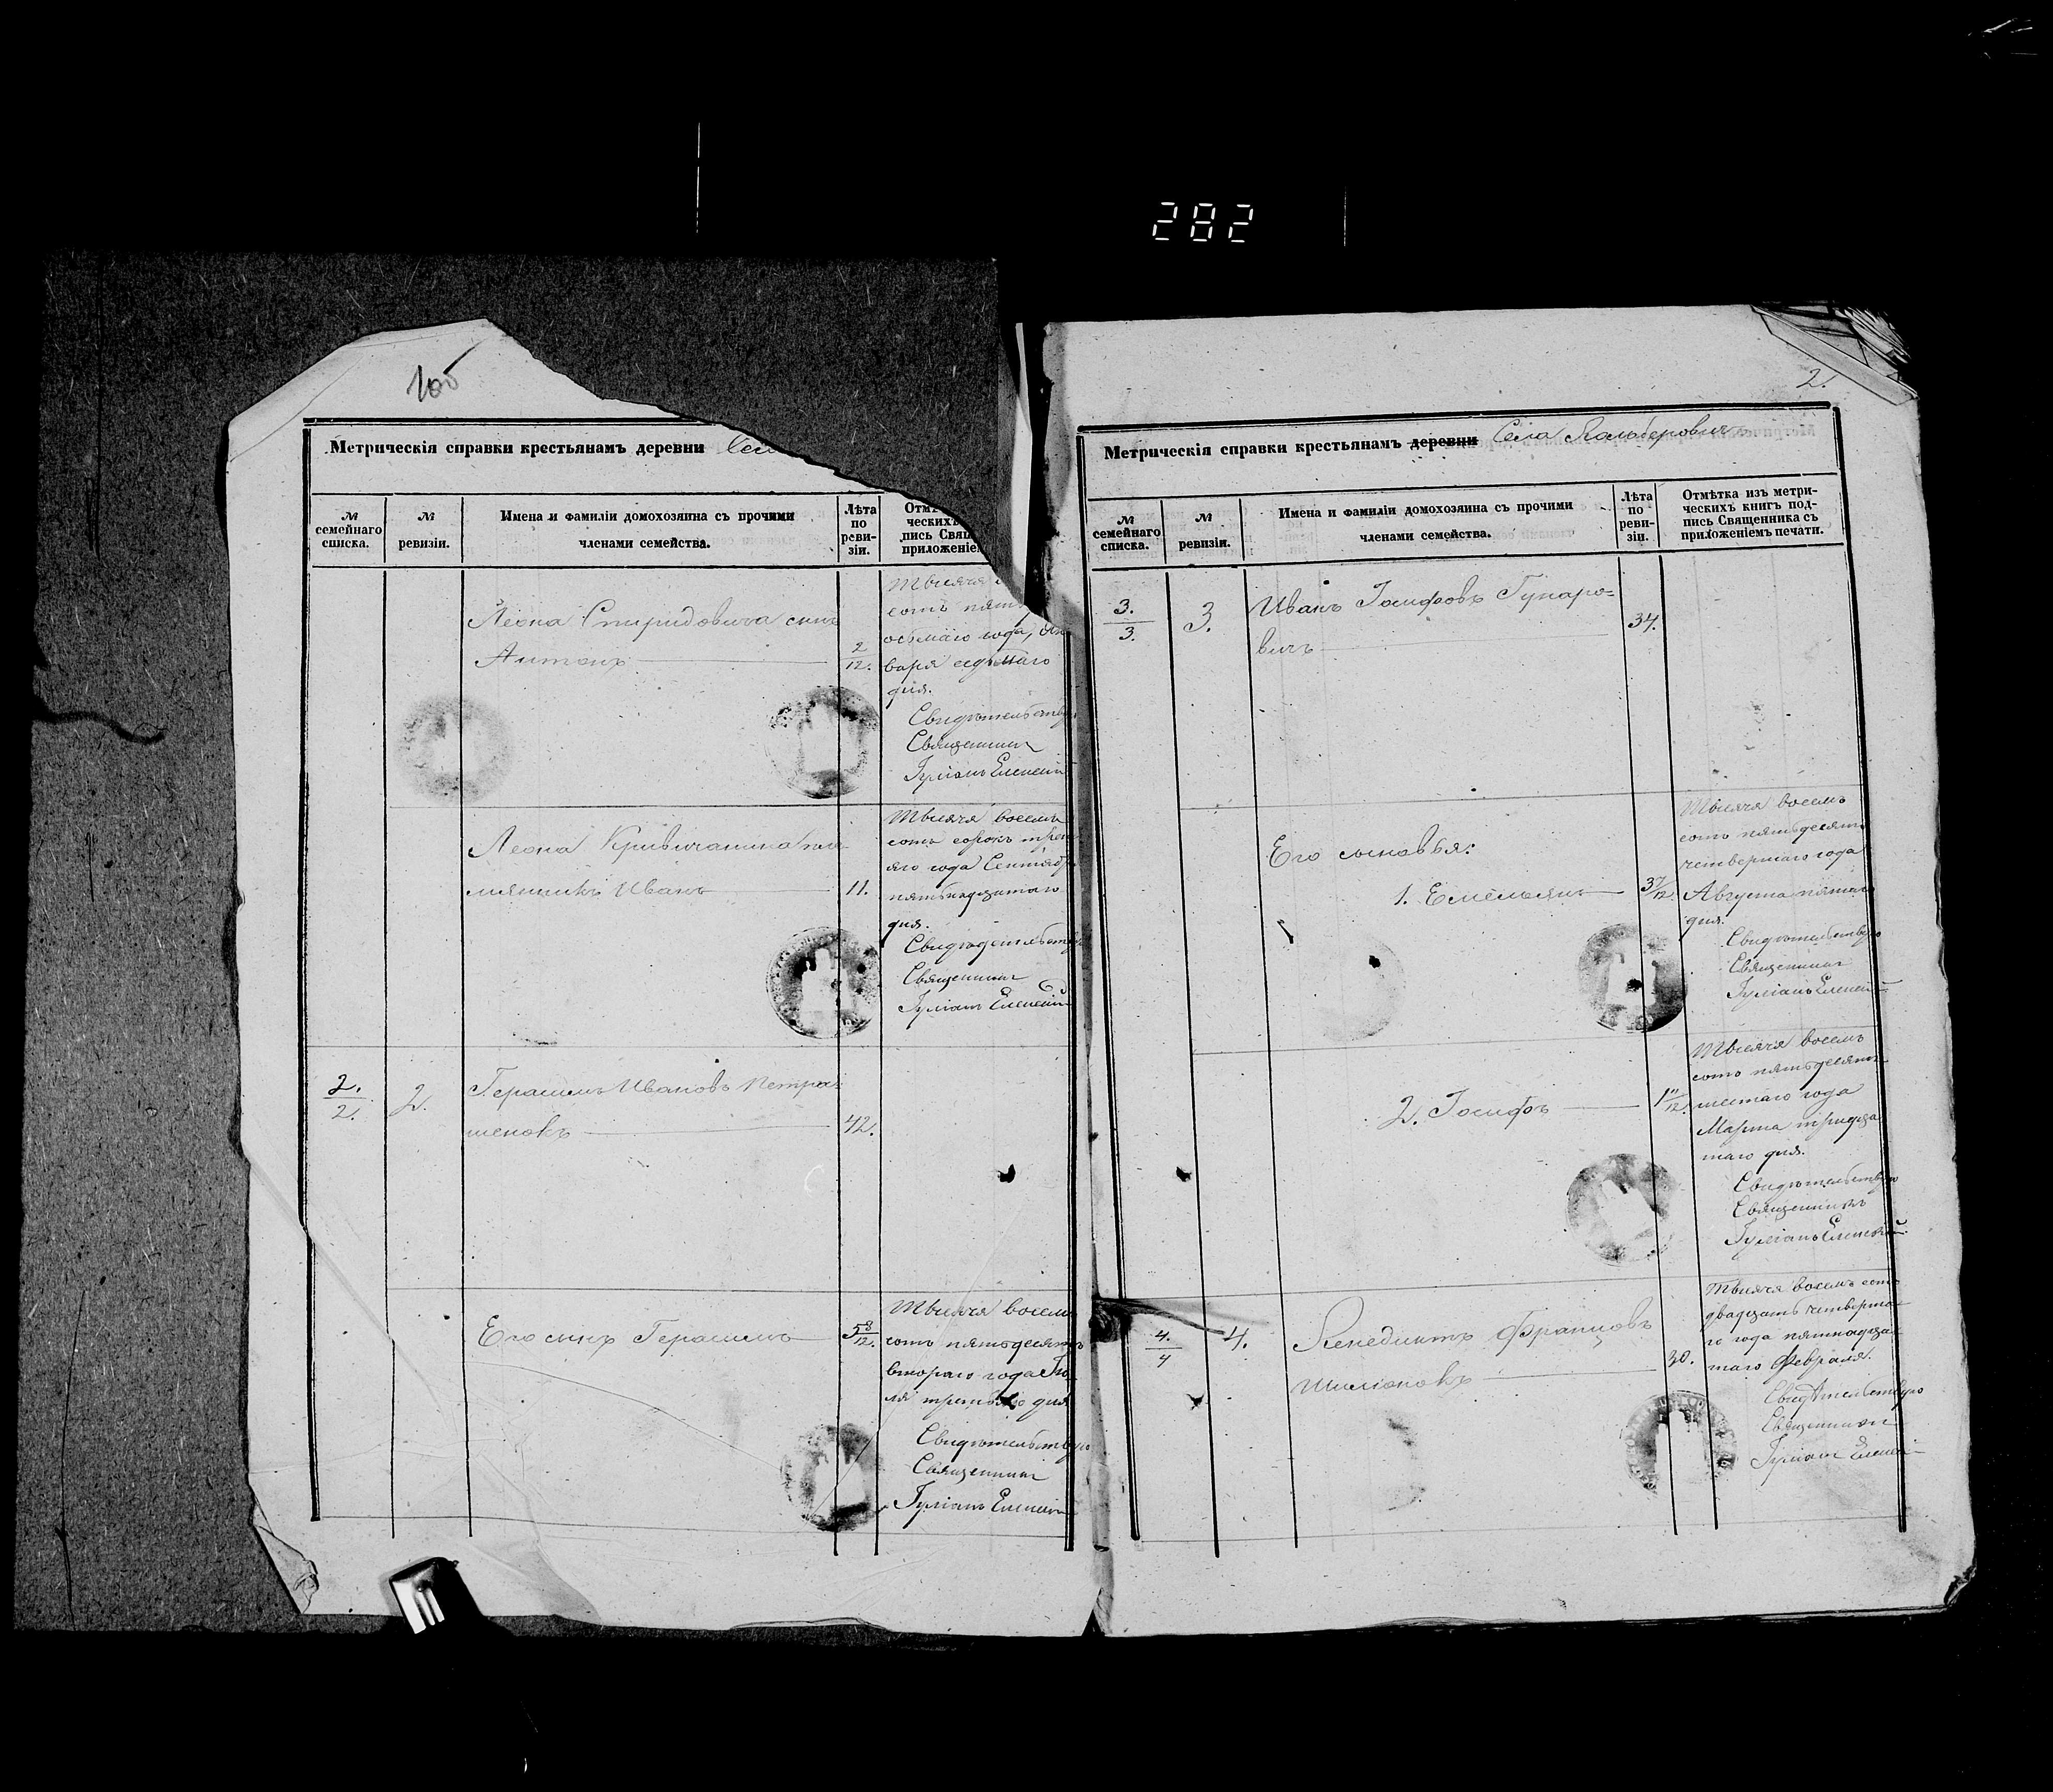 282
105
Метрическія справки крестьянамъ деревни
№ семейнаго списка.
№ ревизіи.
Имена и фамиліи домохозяина съ прочими членами семейства.
Лѣта по реви-зіи.
Отмѣ
ческихъ
пись Свящ
приложеніем
Леона Спиридовича сынъ
Антонъ
2/12.
Тысяча
сотъ пять
осьмаго года, Ян
варя седьмаго
дня.
Свидѣтельствую
Священникъ
Іуліанъ Еленскій
Леона Кривичанина пле
мянникъ Иванъ
11.
Тысяча восемь
сотъ сорокъ треть
яго года Сентябр
пятьнадцатаго
дня.
Свидѣтельству
Священникъ
Іуліанъ Еленскій
2./2.
2.
Герасимъ Ивановъ Петра=
шенокъ
42.
Его сынъ Герасимъ
5 8/12.
Тысяча восемь
сотъ пятьдесятъ
втораго года Ію
ля третьяго дня
Свидѣтельствую
Священникъ
Іуліанъ Еленскій
2.
Метрическія справки крестьянамъ деревни Села
№ семейнаго списка.
№ ревизіи.
Имена и фамиліи домохозяина съ прочими членами семейства.
Лѣта по реви-зіи.
Отмѣтка изъ метри-
ческихъ книгъ под-
пись Священника съ
приложеніемъ печати.
3./3.
3.
Иванъ Іосифовъ Гунаро=
вичъ
34.
Его сыновья:
1. Емельянъ
3 7/12.
Тысяча восемь
сотъ пятьдесятъ
четвертаго года
Августа пятаго
дня.
Свидѣтельствую
Священникъ
Іуліанъ Еленскій
2. Іосифъ
1 11/12.
Тысяча восемь
сотъ пятьдесятъ
шестаго года
Марта тридца
таго дня.
Свидѣтельствую
Священникъ
Іуліанъ Еленскій
4./4
4.
Бенедиктъ Францовъ
Шиленокъ
30.
Тысяча восемь сотъ
двадцать четверта
го года пятнадца
таго Февраля.
Свидѣтельствую
Священникъ
Іуліанъ Еленскій